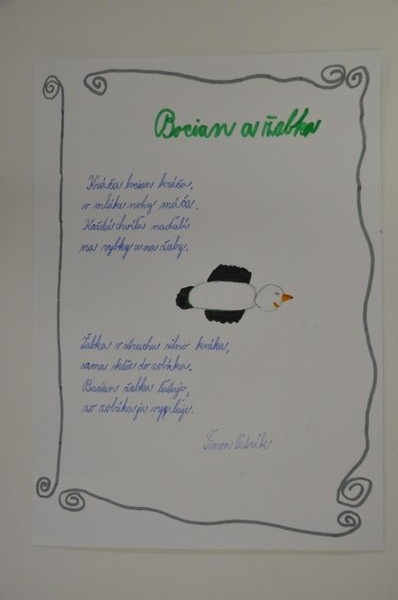 Bocian a žabka
Kráča bocian kráča,
v mláke nohy máča.
Každú chvíľu naďabí
na rybky a na žaby.
Žabka v strachu silno kváka,
sama skáče do zobáka.
Bocian žabku ľutuje,
zo zobáka ju vypľuje.
Šimon